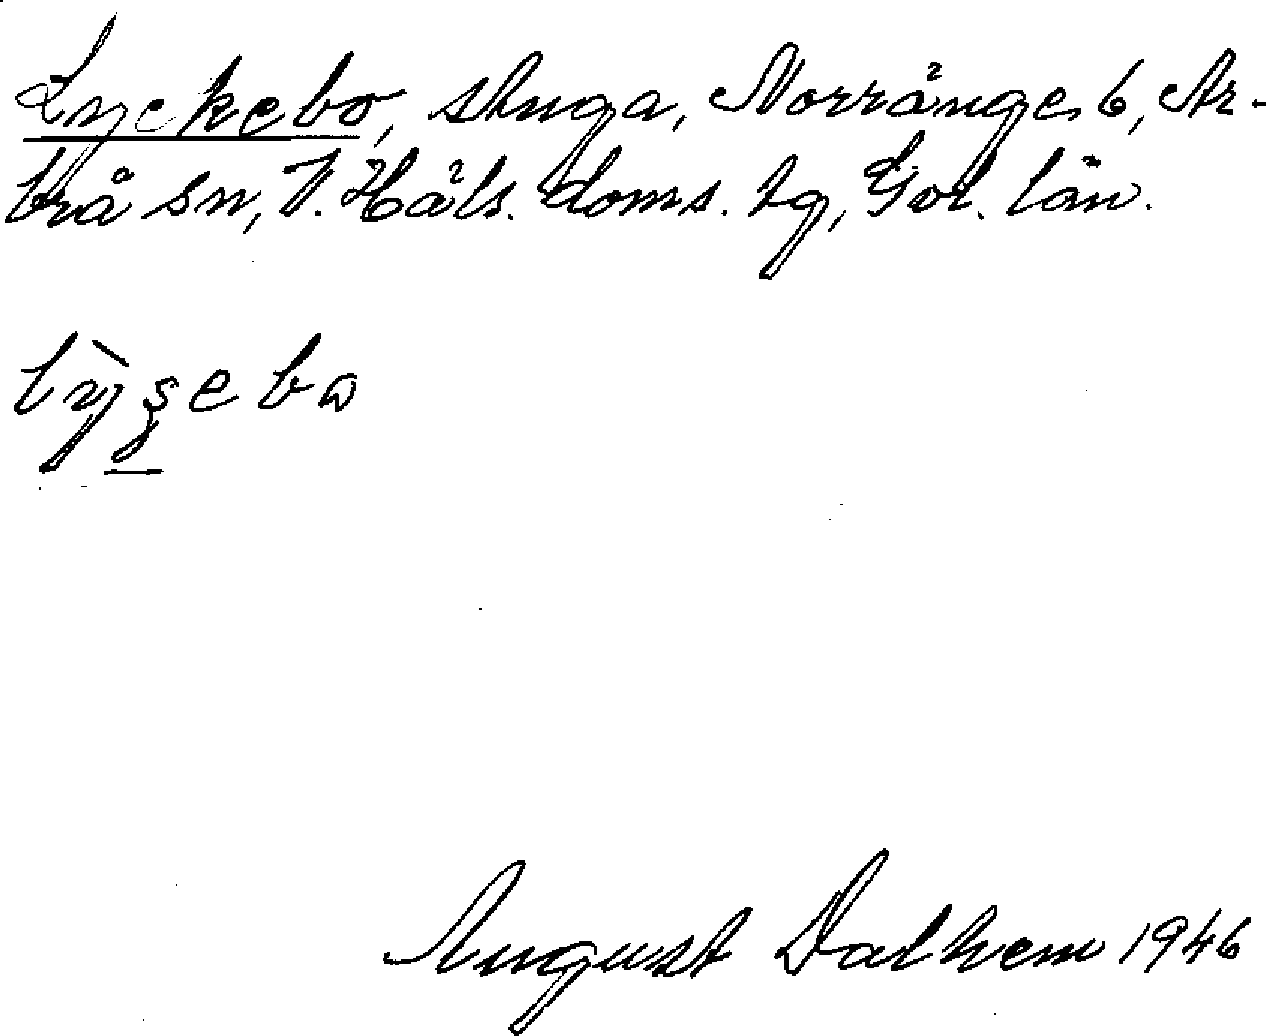 Lyckebo, stuga, Norrånge 6, Ar-
brå sn, V. Häls. doms. tg, Gvl. län.
August Dalhem 1946